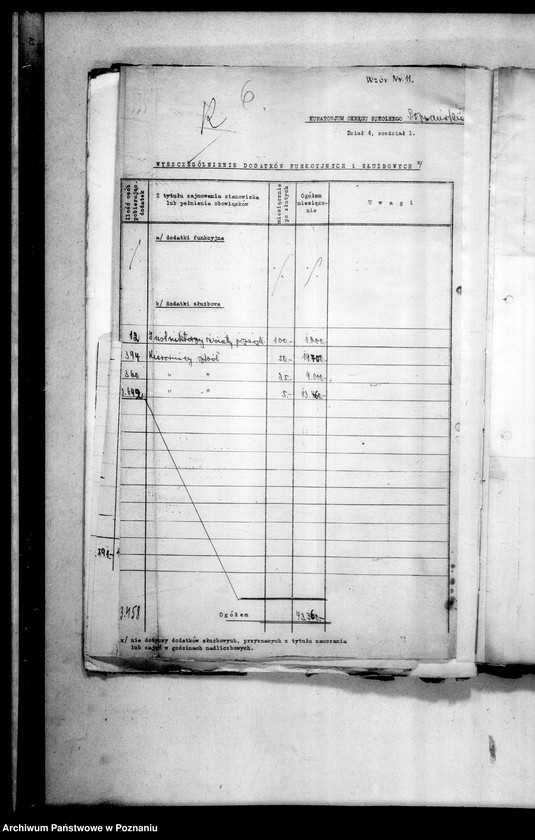 Wzór Nr. 11.
R 6.
KURATORJUM OKRĘGU SZKOLNEGO Poznańskie
Dział 4, rozdział 1.
WYSZCZEGÓLNIENIE DODATKÓW FUNKCYJNYCH i SŁUŻBOWYCH x/
Ilość osób pobierając. dodatek
Z tytułu zajmowania stanowiska lub pełnienia obowiązków
miesięcznie po złotych
Ogółem miesięcznie
U w a g i
a/ dodatki funkcyjne
b/ dodatki służbowe
12 Instruktorzy oświaty pozaszk. 100.-
394 Kierownicy szkół 50.- 19700.-
360 " " 25.- 9.000.-
" " 5.- 13.460.-
Ogółem
x/ nie dotyczy dodatków służbowych, przyznanych z tytułu nauczania
lub zajęć w godzinach nadliczbowych.
Archiwum Państwowe w Poznaniu